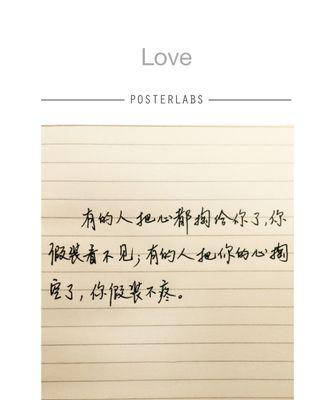 Love
POSTERLABS
有的人把心都掏给你了,你
假装看不见;有的人把你的心掏
空了,你假装不疼。